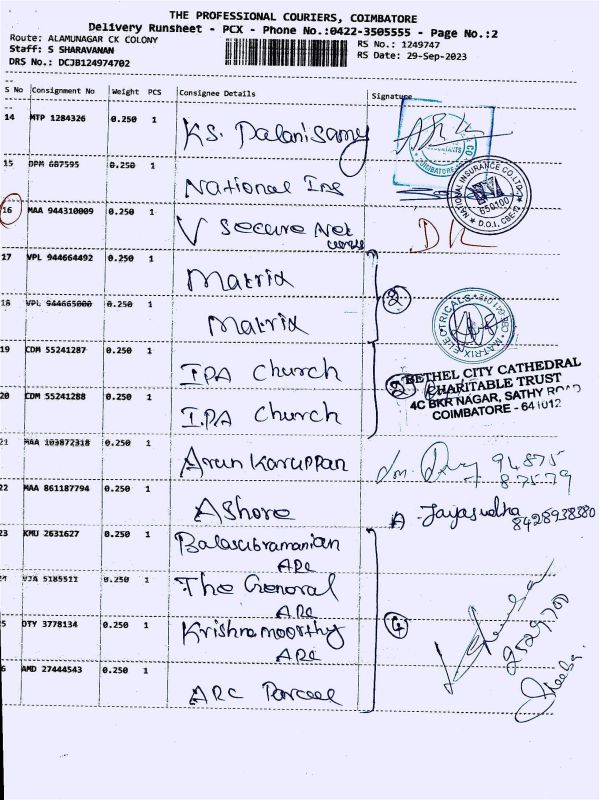 THE PROFESSIONAL COURIERS, COIMBATORE
Delivery Runsheet - PCX - Phone No.:0422-3505555 - Page No.:2
Route: ALAMUNAGAR CK COLONY
Staff: S SHARAVANAN
DRS No.: DCJB124974702
RS No.: 1249747
RS Date: 29-Sep-2023
S No Consignment No Weight PCS Consignee Details Signature
14 MTP 1284326 0.250 1 KS. Palanisamy
15 DPM 687595 0.250 1 National Ins
NATIONAL INSURANCE CO.LTD. 650100 D.O.I. CBE-12
16 MAA 944310009 0.250 1 V Secure Net
DK
17 VPL 944664492 0.250 1 Matrix
2
18 VPL 944665000 0.250 1 Matrix
MATRIX ELECTRICALS
19 CDM 55241287 0.250 1 IPA Church
BETHEL CITY CATHEDRAL
CHARITABLE TRUST
4C BKR NAGAR, SATHY ROAD
COIMBATORE - 641012
2
20 CDM 55241288 0.250 1 I.P.A Church
21 MAA 103872318 0.250 1 Arun Karuppan
94875
87579
22 MAA 861187794 0.250 1 Ashore
A. Jayasudha
8428938380
23 KMU 2631627 0.250 1 Balasubramanian
ARC
VJA 5185511 0.250 1 The General
ARC
4
5 DTY 3778134 0.250 1 Krishnamoorthy
ARC
6 AMD 27444543 0.250 1 ARC Parcel